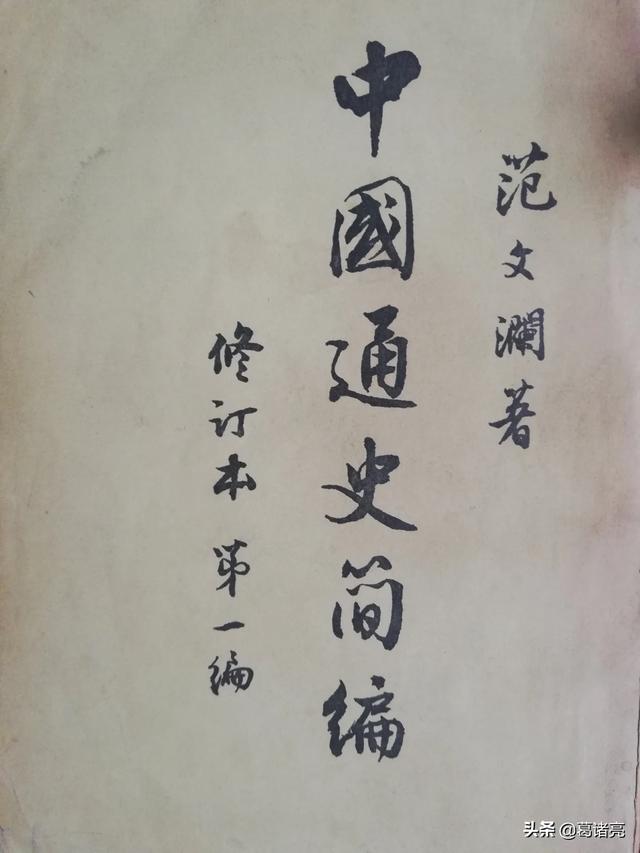 范文瀾著
中國通史简编
修订本 第一编
头条 @葛诸亮